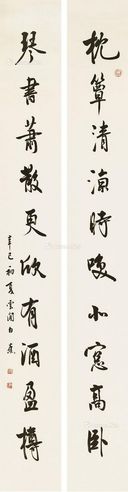 枕簟清涼時喚小窗高卧
琴書蕭散更欣有酒盈樽
辛巳初夏雲間白蕉